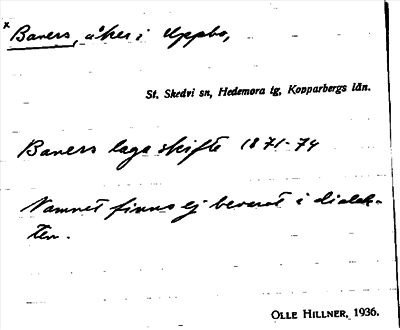 x
Baners, åker i Uppbo,
St. Skedvi sn, Hedemora tg, Kopparbergs län.
Baners laga skifte 1871-74
Namnet finns ej bevarat i dialek-
ten.
OLLE HILLNER, 1936.